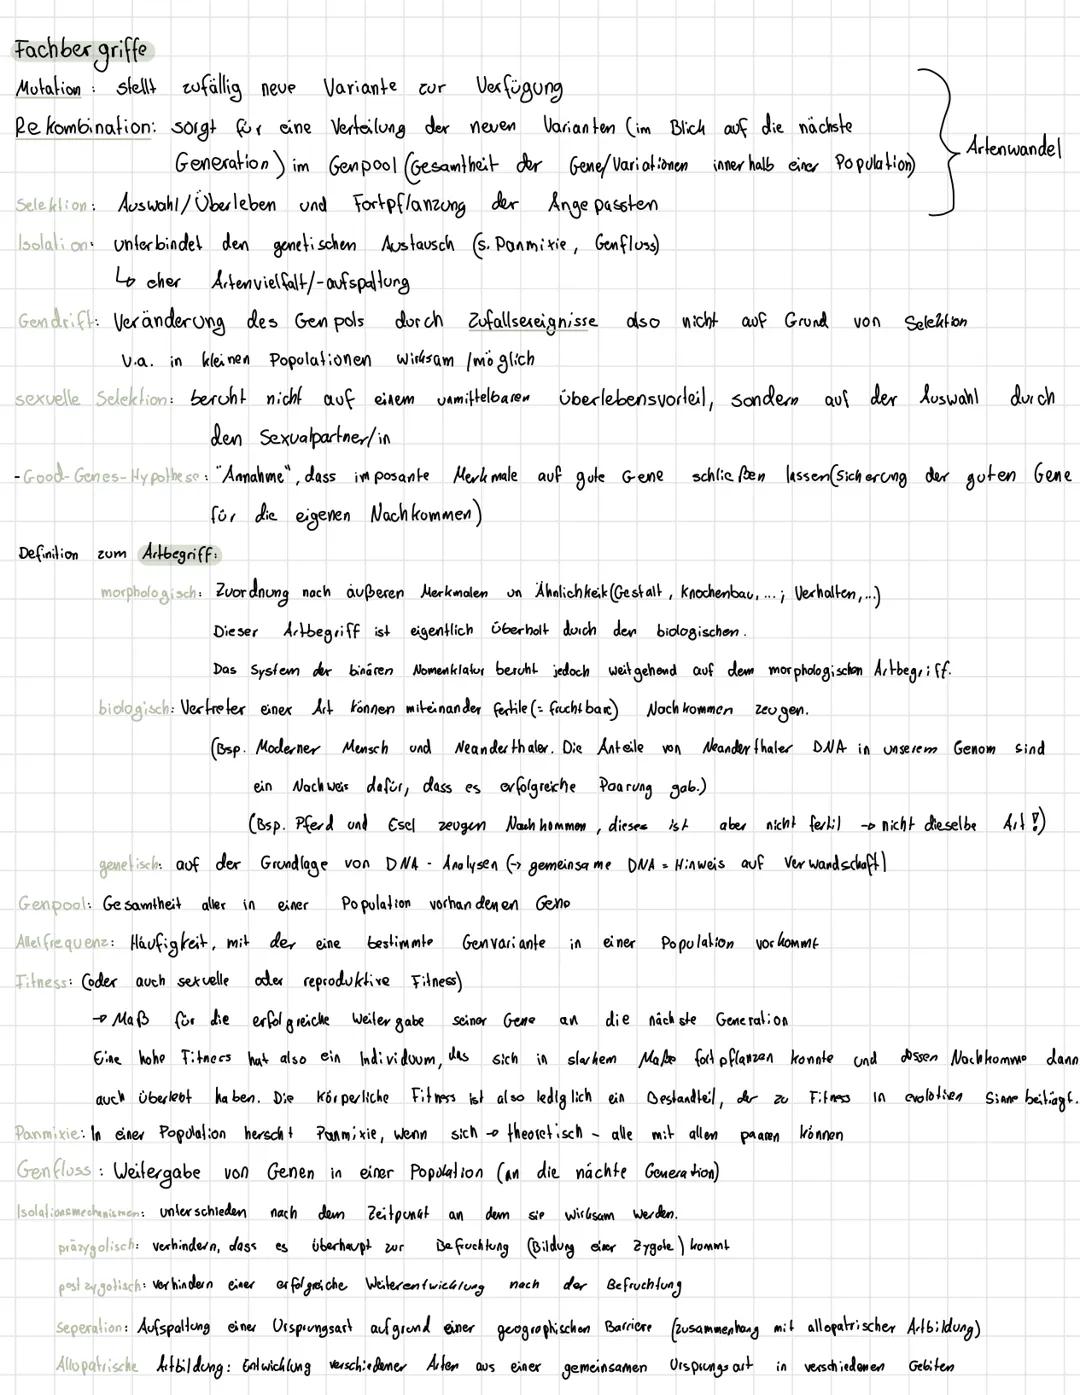 Fachbergriffe
Mutation: stellt zufällig neue Variante zur Verfügung
Rekombination: sorgt für eine Verteilung der neuen Varianten (im Blick auf die nächste
Generation) im Genpool (Gesamtheit der Gene/Variationen innerhalb einer Population)
Artenwandel
Selektion: Auswahl/Überleben und Fortpflanzung der Angepassten
Isolation: unterbindet den genetischen Austausch (s. Panmixie, Genfluss)
↳ eher Artenvielfalt/-aufspaltung
Gendrift: Veränderung des Genpols durch Zufallsereignisse also nicht auf Grund von Selektion
v.a. in kleinen Populationen wirksam/möglich
sexuelle Selektion: beruht nicht auf einem unmittelbaren überlebensvorteil, sondern auf der Auswahl durch
den Sexualpartner/in
-Good-Genes-Hypothese: "Annahme", dass imposante Merkmale auf gute Gene schließen lassen (Sicherung der guten Gene
für die eigenen Nachkommen)
Definition zum Artbegriff:
morphologisch: Zuordnung nach äußeren Merkmalen un Ähnlichkeit (Gestalt, Knochenbau, ...; Verhalten, ...)
Dieser Artbegriff ist eigentlich überholt durch den biologischen.
Das System der binären Nomenklatur beruht jedoch weitgehend auf dem morphologischen Artbegriff.
biologisch: Vertreter einer Art können miteinander fertile (= fruchtbare) Nachkommen zeugen.
(Bsp. Moderner Mensch und Neanderthaler. Die Anteile von Neanderthaler DNA in unserem Genom sind
ein Nachweis dafür, dass es erfolgreiche Paarung gab.)
(Bsp. Pferd und Esel zeugen Nachkommen, dieses ist aber nicht fertil → nicht dieselbe Art!)
genetisch: auf der Grundlage von DNA - Analysen (→ gemeinsame DNA = Hinweis auf Verwandschaft)
Genpool: Gesamtheit aller in einer Population vorhandenen Gene
Allelfrequenz: Häufigkeit, mit der eine bestimmte Genvariante in einer Population vorkommt
Fitness: (oder auch sexuelle oder reproduktive Fitness)
→ Maß für die erfolgreiche Weitergabe seiner Gene an die nächste Generation
Eine hohe Fitness hat also ein Individuum, das sich in starkem Maße fortpflanzen konnte und dessen Nachkomme dann
auch überlebt haben. Die Körperliche Fitness ist also lediglich ein Bestandteil, der zu Fitness in evolotiven Sinne beiträgt.
Panmixie: In einer Population herscht Panmixie, wenn sich → theoretisch - alle mit allen paaren können
Genfluss: Weitergabe von Genen in einer Population (an die nächte Generation)
Isolationsmechanismen: unterschieden nach dem Zeitpunkt an dem sie wirksam werden.
präzygotisch: verhindern, dass es überhaupt zur Befruchtung (Bildung einer Zygote) kommt
postzygotisch: verhindern einer erfolgreiche Weiterentwicklung nach der Befruchtung
Seperation: Aufspaltung einer Ursprungsart aufgrund einer geographischen Barriere (zusammenhang mit allopatrischer Artbildung)
Allopatrische Artbildung: Entwicklung verschiedener Arten aus einer gemeinsamen Ursprungsart in verschiedenen Gebiten